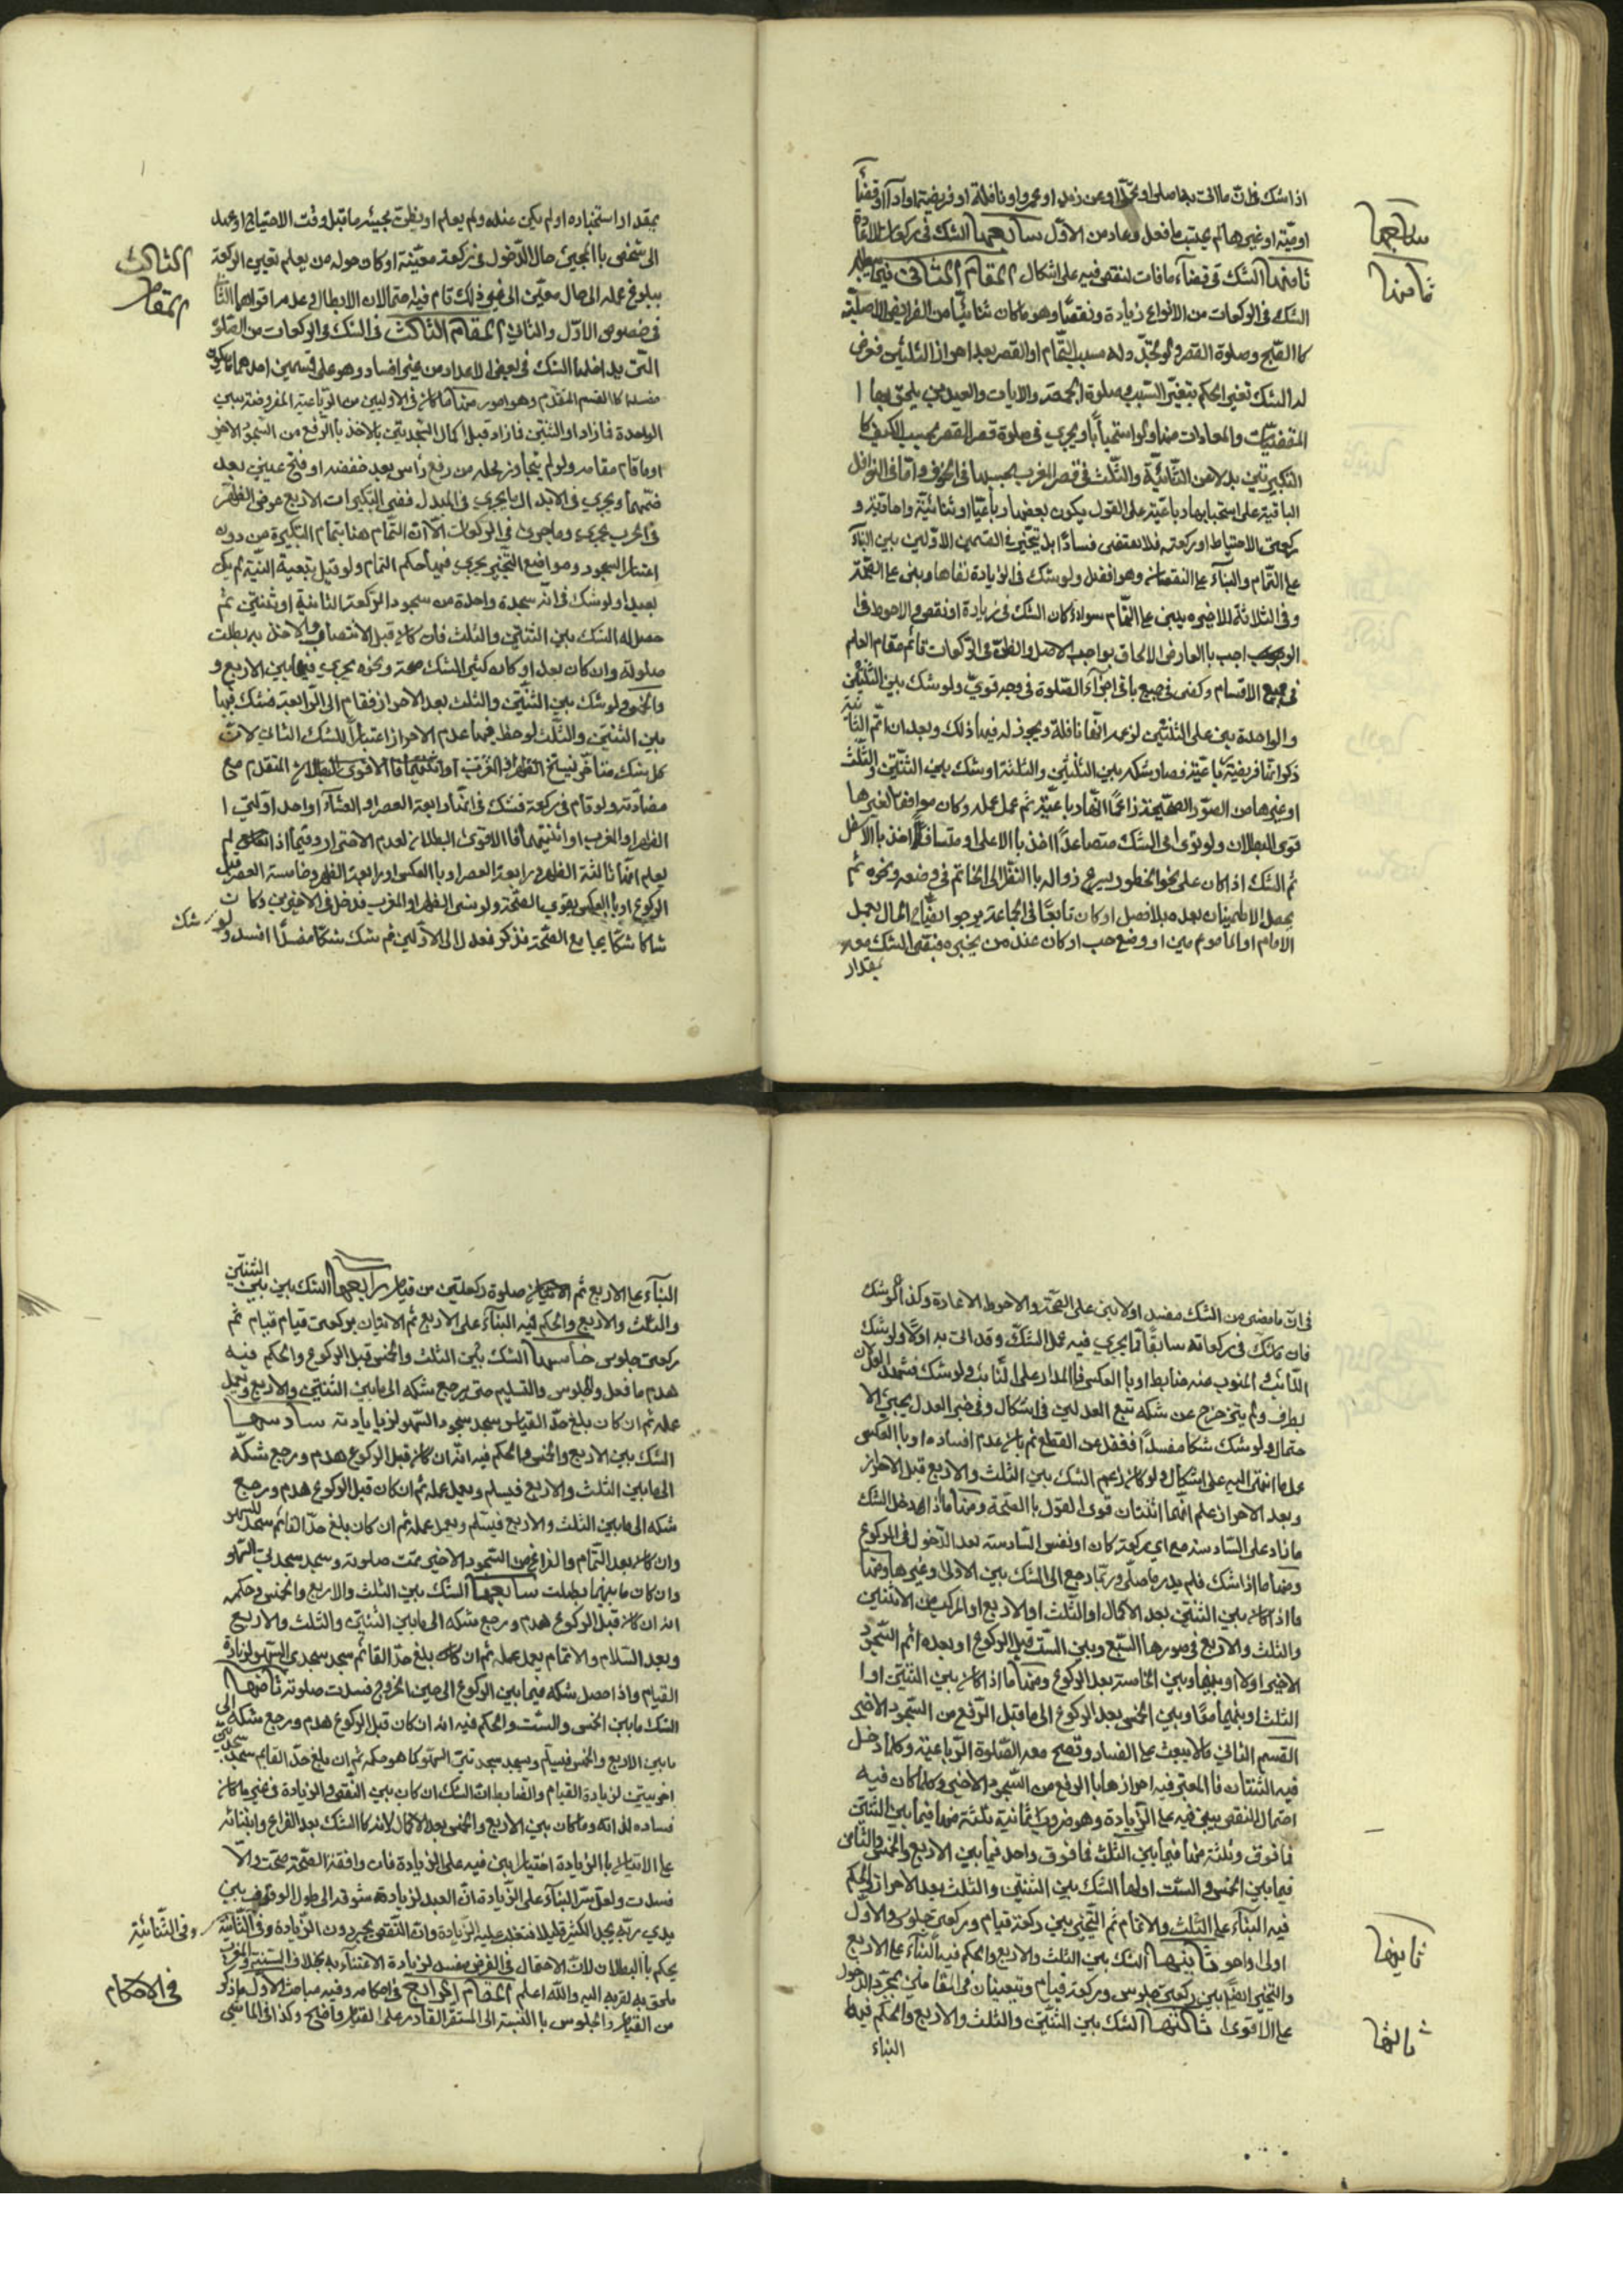 اذا شك في ان ما اتى بها صلوة او عن زيد او عمرو او نافلة او فريضة او اداء او قضاء
او ميّتة او غيرها لم يحتسب ما فعل وعاد من الاوّل سابعها الشك في ركعات المعادة
سابعها
ثامنها الشك في قضاء ما فات لنقص فيه على اشكال المقام الثاني فيما يبطله
ثامنها
الشك في الركعات من الانواع زيادة ونقصًا وهو ما كان ثنائيًا من الفرائض الاصليّة
كالصّبح وصلوة القصر ولو تجدّد له سبب التّمام او القصر بعد احراز الثنتين فعرض
له الشك تغير الحكم بتغيّر السّبب وصلوة الجمعة والايات والعيدين يلحق بها ا
المقضيّات والمعادات منها ولو استحبابًا ويجري في صلوة قصر القصر بحسب الكيف كا
التكبيرتين بدلا عن الثّنائيّة والثّلث في قصر المغرب بحسبها في الخوف وامّا في النّوافل
الباقية على استحبابها رباعيّة على القول بكون بعضها رباعيّا او ثنائيّة واحاديّة و
ركعتي الاحتياط او ركعته فلا يقتضي فسادًا بل يتخيّر في القسمين الاوّلين بين البناء
على التّمام والبناء على النقصان وهو افضل ولو شك في الزيادة نفاها وبنى على الصّحّة
وفي الثلاثة الاخيرة يبني على التّمام سواء كان الشك في زيادة او نقص والاحوط فيما
وجب بالعارض الالحاق بواجب الاصل والظنّ في الرّكعات قائم مقام العلم
في جميع الاقسام وكفى في جميع باقي اجزاء الصّلوة في وجه قويّ ولو شك بين الثنتين
والواحدة بنى على الثنتين لزعم انّها نافلة ويجوز له فيها ذلك وبعد ان اتمّ الثانية
ذكر انّها فريضة رباعيّة وصار شكه بين الثنتين والثلثة او شك بين الثنتين والثّلث
او غيرها من الصّور الصّحيحة زاعمًا انّها رباعيّة ثم عمل عمله وكان موافقا لغيرها
قوى البطلان ولو توالى الشّك متصاعدًا اخذ بالاعلى او متسافلا اخذ بالاسفل
ثم الشك اذا كان على نحو الخطور يسرع زواله بالنّظر الى الخاتم في وضعه ونحوه ثم
يحصل الاطمينان بعده بلا فصل او كان تابعًا في الجماعة يرجو ايضاح الحال بعمل
الامام او المأمومين او وضع حب او كان عنده من يخبره فبقي الشك معه
بمقدار
بمقدار استخباره او لم يكن عنده ولم يعلم او يظنّ بمجيئه ما قبل وقت الاحتياج او عهد
الى شخص بالمجيئ حال الدّخول في ركعة معيّنة او كان حوله من يعلم تعيين الركعة
الثالث
المقام
ببلوغ عمله الى حال معيّن الى غير ذلك قام فيه احتمالان الابطال وعدمه اقواهما الثاني
في خصوص الاوّل والثاني المقام الثالث في الشك في الركعات من الصّلوة
التي يدخلها الشك في بعض الاعداد من غير افساد وهو على قسمين احدهما ما يكون
مفسدا كالقسم المقدّم وهو امور منها ما كان في الاوليين من الرّباعية المفروضة بين
الواحدة فازاد او الثنتين فازاد قبل اكمال السّجدتين بالاخذ بالرّفع من السّجود الاخير
او ما قام مقامه ولو لم يتجاوز محله من رفع رأس بعد خفضه او فتح عينين بعد
ضمّهما ويجري في الابدال ما يجري في المبدل ففي التّكبيرات الاربع عوض الظهر
في الحرب يجري وما جرى في الركعات الا ان التّمام هنا بتمام التكبيرة من دون
اعتبار السجود ومواضع التّخيير يجري فيها حكم التمام ولو قيل بتبعية النّية لم يكن
بعيدا ولو شك في انّه سجدة واحدة من سجود الرّكعة الثانية او ثنتين ثم
حصل له الشك بين الثنتين والثلث فان كان قبل الانتصاب والاخذ به بطلت
صلوته وان كان بعد او كان كثير الشك صحت ونحوه يجري فيما بين الاربع و
والخمس ولو شك بين الثنتين والثلث بعد الاحراز فقام الى الرّابعة فشك فيها
بين الثنتين والثّلث لوحظ فيها عدم الاحراز اعتبارا للشك الثاني لانّ
كل شك متأخّر ينسخ المتقدم مع
مضادّته ولو قام في ركعة فشك في انّها رابعة العصر او العشاء او احد اوّلتي ا
الظهر او المغرب او اثنتيهما فالاقوى البطلان لعدم الاحراز وفيما اذا لم
يعلم انّها ثالثة الظهر او رابعة العصر او بالعكس او رابعة الظهر وخامسة العصر قبل
الركوع او بالعكس يقوى الصّحّة ولو نسي الظهر او المغرب فدخل في الاخيرتين وكان
شاكا شكّا يجامع الصّحّة فذكر فعدل الى الاوّلتين ثم شك شكّا مفسدًا افسد ولو شك
في انّ ما مضى من الشك مفسد اولا بنى على الصّحّة والاحوط الاعادة وكذا لو شك
فان شك في ركعاته سابقًا ممّا يجري فيه عمل الشّكّ وقد اتى به اولا ولو شك
النّائب والمنوب عنه ضابط او بالعكس فالمدار على النّائب ولو شك فشهد العدلان
بطرف ولم يخرج عن شكه تبع العدلين في اشكال وفي خبر العدل يجيئ الا
حتمال ولو شك شكّا مفسدًا ففقد عن القطع ثم بان عدم افساده او بالعكس
عمل ما انتهى اليه على اشكال ولو كان زعم الشك بين الثلث والاربع قبل الاحراز
وبعد الاحراز علم انّهما اثنتان قوى القول بالصّحّة ومنها ما اذا دخل الشك
ما زاد على السّادسة مع اي ركعة كان او نفس السّادسة بعد الدّخول في الركوع
ومنها ما اذا شك فلم يدر ما صلّى وربما رجع الى الشك بين الاولى وغيرها ومنها
ما اذا كان بين الثنتين بعد الاكمال او الثّلث او الاربع او المركب من الاثنتين
والثلث والاربع في صورها السّبع وبين السّت قبل الركوع او بعده اتم السّجود
الاخير اولا او بينها وبين الخامسة بعد الركوع ومنها ما اذا كان بين الثنتين او ا
الثلث او بينهما معًا وبين الخمس بعد الركوع الى ما قبل الرّفع من السّجود الاخير
القسم الثاني ما لا يبعث على الفساد وتصح معه الصّلوة الرّباعيّة وكلما دخل
فيه الثنتان فالمعتبر فيه احرازها بالرفع من السّجود الاخير وكلما كان فيه
احتمال النقص يبنى فيه على الزّيادة وهو ضروب ثمانية ثلثة منها فيما بين الثنتين
فما فوق وثلثة منها فيما بين الثّلث فما فوق وواحد فيما بين الاربع والخمس والثّامن
فيما بين الخمس والسّت اولها الشك بين الثنتين والثلث بعد الاحراز والحكم
فيه البناء على الثّلث والاتمام ثم التّخيير بين ركعة قيام وركعتي جلوس والاوّل
اولى واحوط ثانيها الشك بين الثلث والاربع والحكم فيه البناء على الاربع
ثانيها
والتخيير ايضًا بين ركعتي جلوس وركعة قيام ويتعيّنان في المقامين بمجرّد الدّخول
على الاقوى ثالثها الشك بين الثنتين والثلث والاربع والحكم فيه
ثالثها
البناء
البناء على الاربع ثم الاتيان صلوة ركعتين من قيام رابعها الشك بين الثنتين
والثلث والاربع والحكم فيه البناء على الاربع ثم الاتيان بركعتي قيام قيام ثم
ركعتي جلوس خامسها الشك بين الثلث والخمس قبل الركوع والحكم فيه
هدم ما فعل والجلوس والتسليم حتى يرجع شكه الى ما بين الثنتين والاربع ويعمل
عمله ثم ان كان بلغ حدّ القيام سجد سجود السّهو لزيادته سادسها
الشك بين الاربع والخمس والحكم فيه انّه ان كان قبل الركوع هدم ورجع شكّه
الى ما بين الثلث والاربع فيسلم ويعمل عمله ثم ان كان قبل الركوع هدم ورجع
شكه الى ما بين الثلث والاربع فيسلم ويعمل عمله ثم ان كان بلغ حدّ القائم سجد للسّهو
وان كان بعد التّمام والفراغ من السّجود الاخير تمّت صلوته وسجد سجدتي السّهو
وان كان ما بينهما بطلت سابعها الشك بين الثلث والاربع والخمس وحكمه
انّه ان كان قبل الركوع هدم ورجع شكه الى ما بين الثنتين والثلث والاربع
وبعد السّلام والاتمام يعمل عمله ثم ان كان بلغ حدّ القائم سجد سجدتي السّهو لزيادة
القيام واذا حصل شكه فيما بين الركوع الى حين الخروج فسدت صلوته ثامنها
الشك ما بين الخمس والسّت والحكم فيه انّه ان كان قبل الركوع هدم ورجع شكه الى
ما بين الاربع والخمس فيسلم ويسجد سجدتي السّهو كما هو حكمه ثم ان بلغ حدّ القائم سجد سجدتين
اخريتين لزيادة القيام والضّابط انّ الشك ان كان بين النّقص والزيادة في غير ما كان
فساده لذاته وما كان بين الاربع والخمس بعد الاكمال لانّه كالشك بعد الفراغ وابتنائه
على الاتيان بالزيادة اختيارا بنى فيه على الزيادة فان وافقته الصّحّة صحّت والّا
فسدت ولعلّ سرّ البناء على الزّيادة انّ العبد لزيادة شوقه الى طول الوقوف بين
يدي ربّه يجد الكثير قليلا فتغلب عليه الزّيادة وانّ النّقص يجبر دون الزّيادة وفي الثّنائيّة
يحكم بالبطلان لانّ الاحتمال في الفرض مفسد لزيادة الاعتناء به بخلاف السّنّة
ملحق به لقربه اليه والله اعلم المقام الرابع في احكامه وفيه مباحث الاوّل ما ذكر
في الاحكام
من القيام والجلوس بالنّسبة الى المستقرّ القادر على القيام واضح وكذا في الماشي